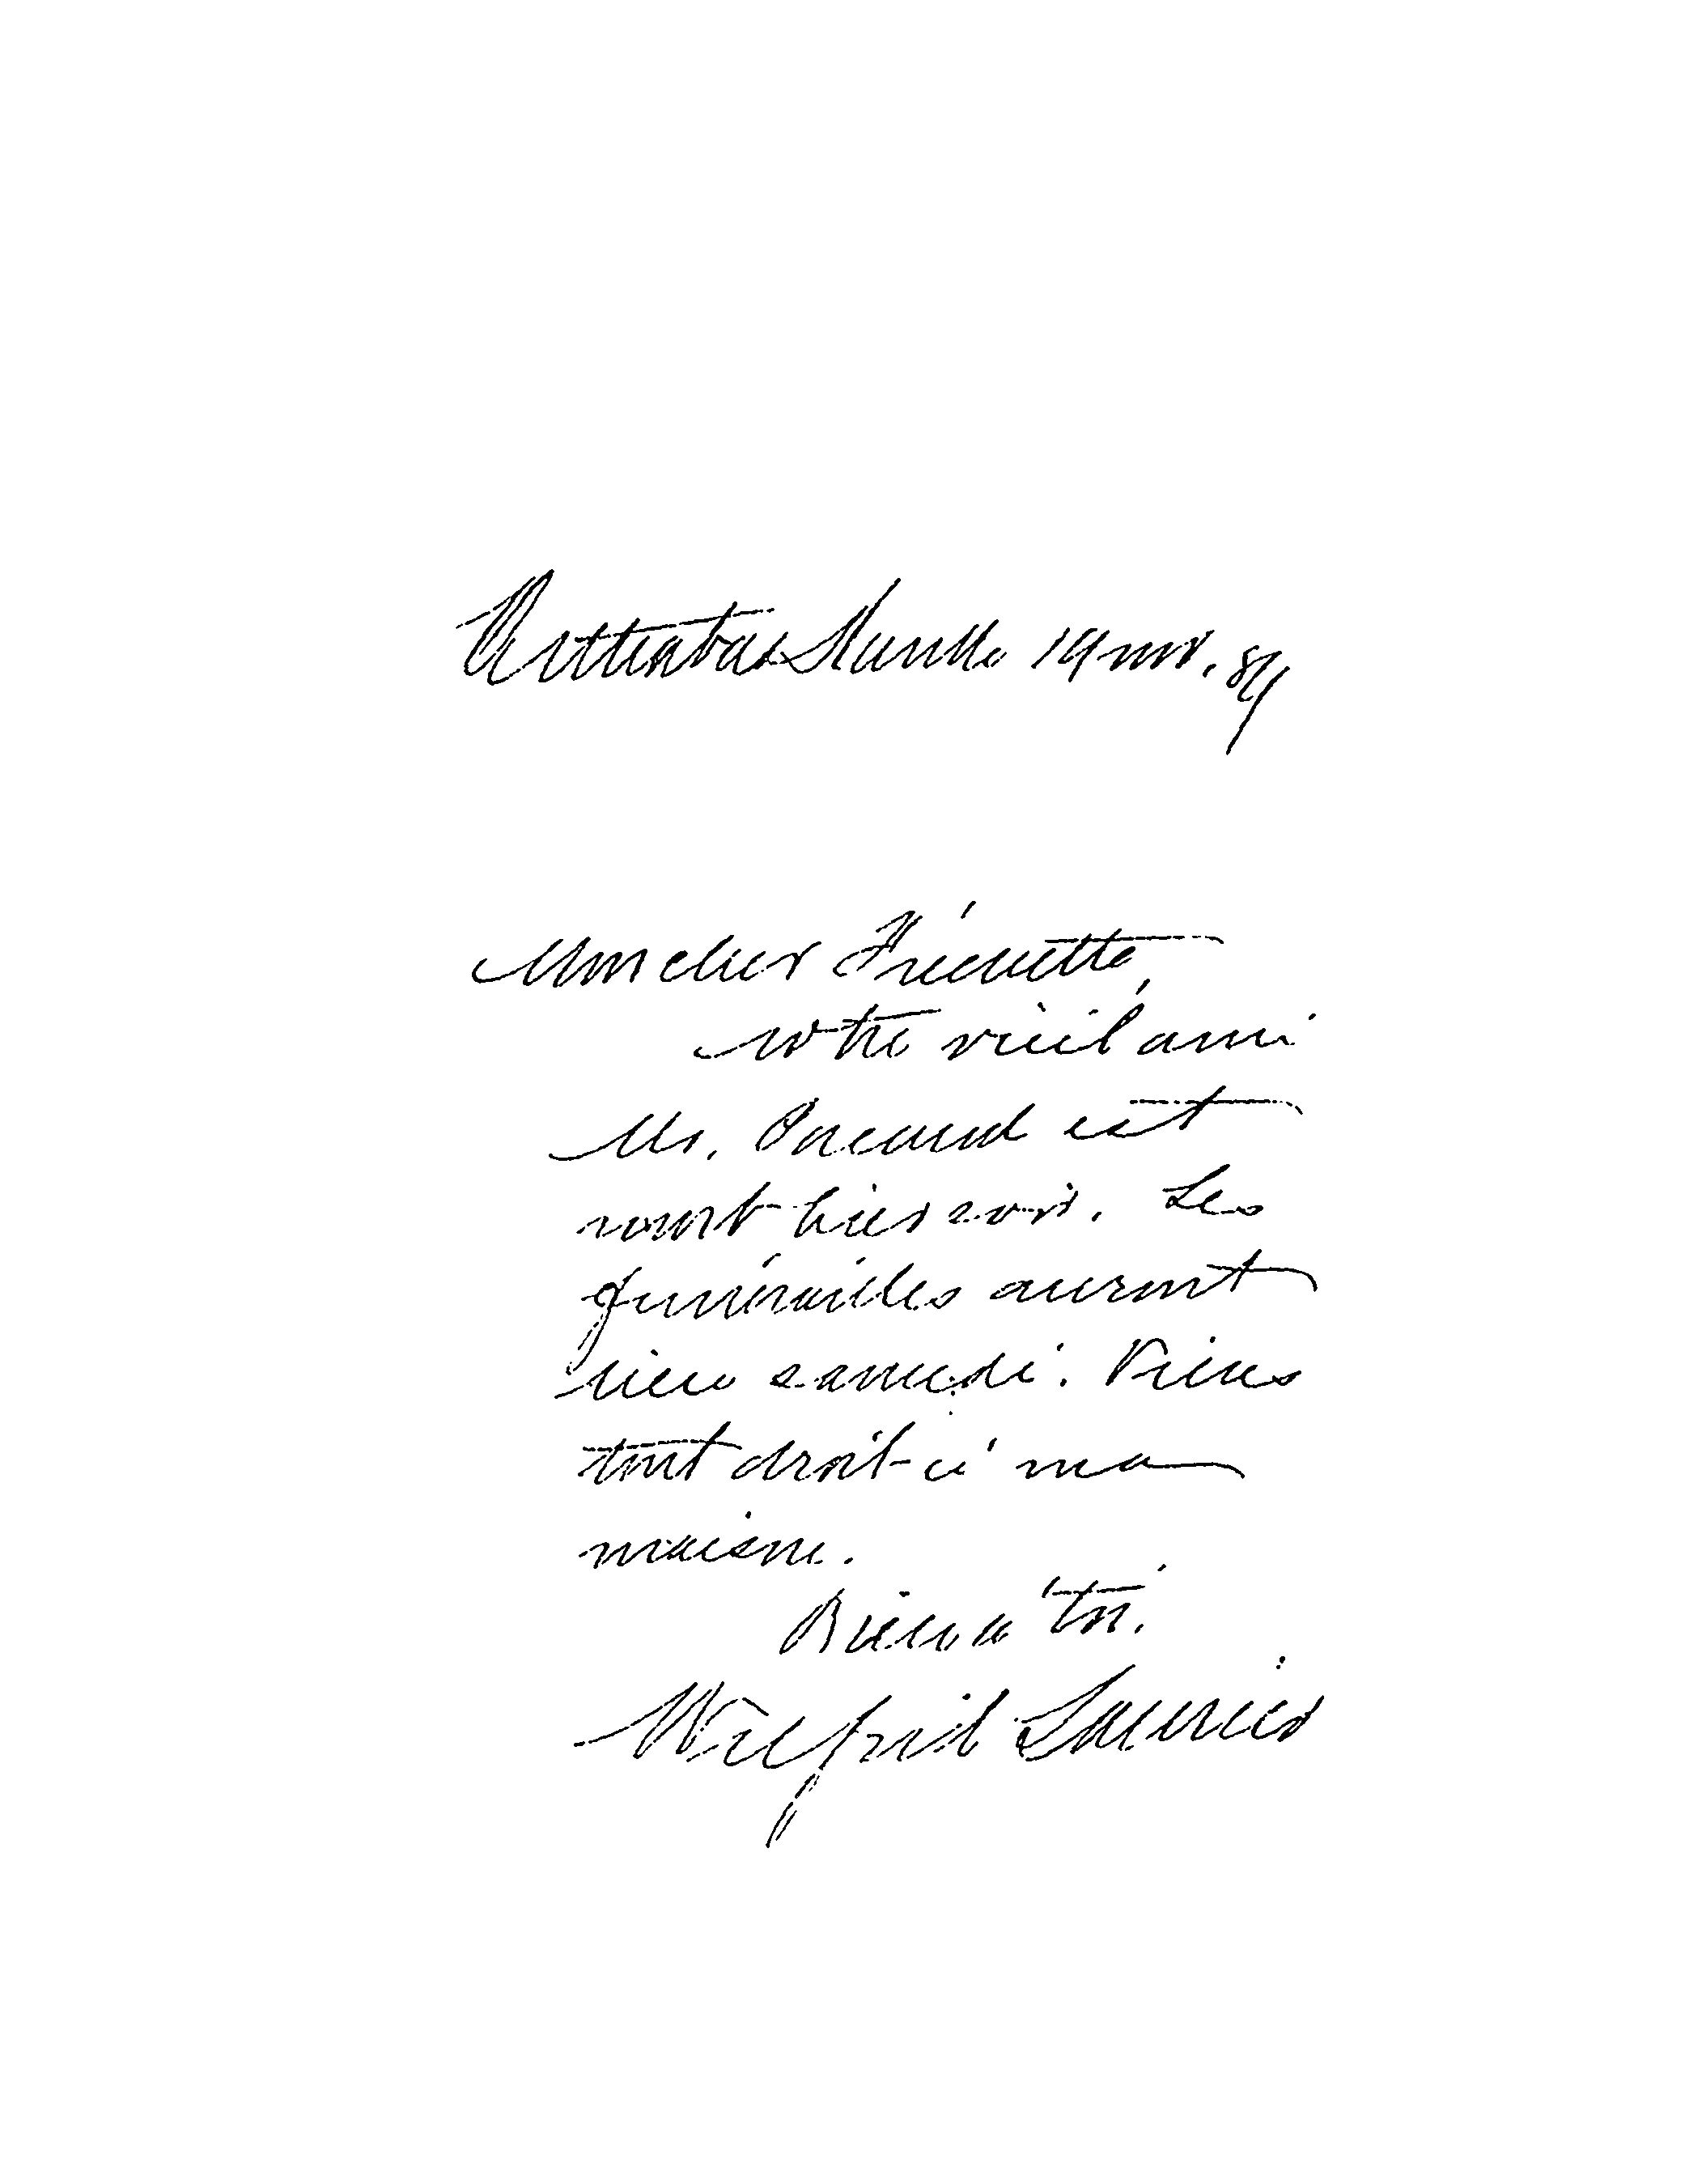 Arthabaskaville 19 nov. 89
Mon cher Fréchette,
Notre vieil ami
Mr. Pacaud est
mort hier soir. Les
funérailles auront
lieu samedi. Viens
tout droit à ma
maison.
Bien à toi.
Wilfrid Laurier